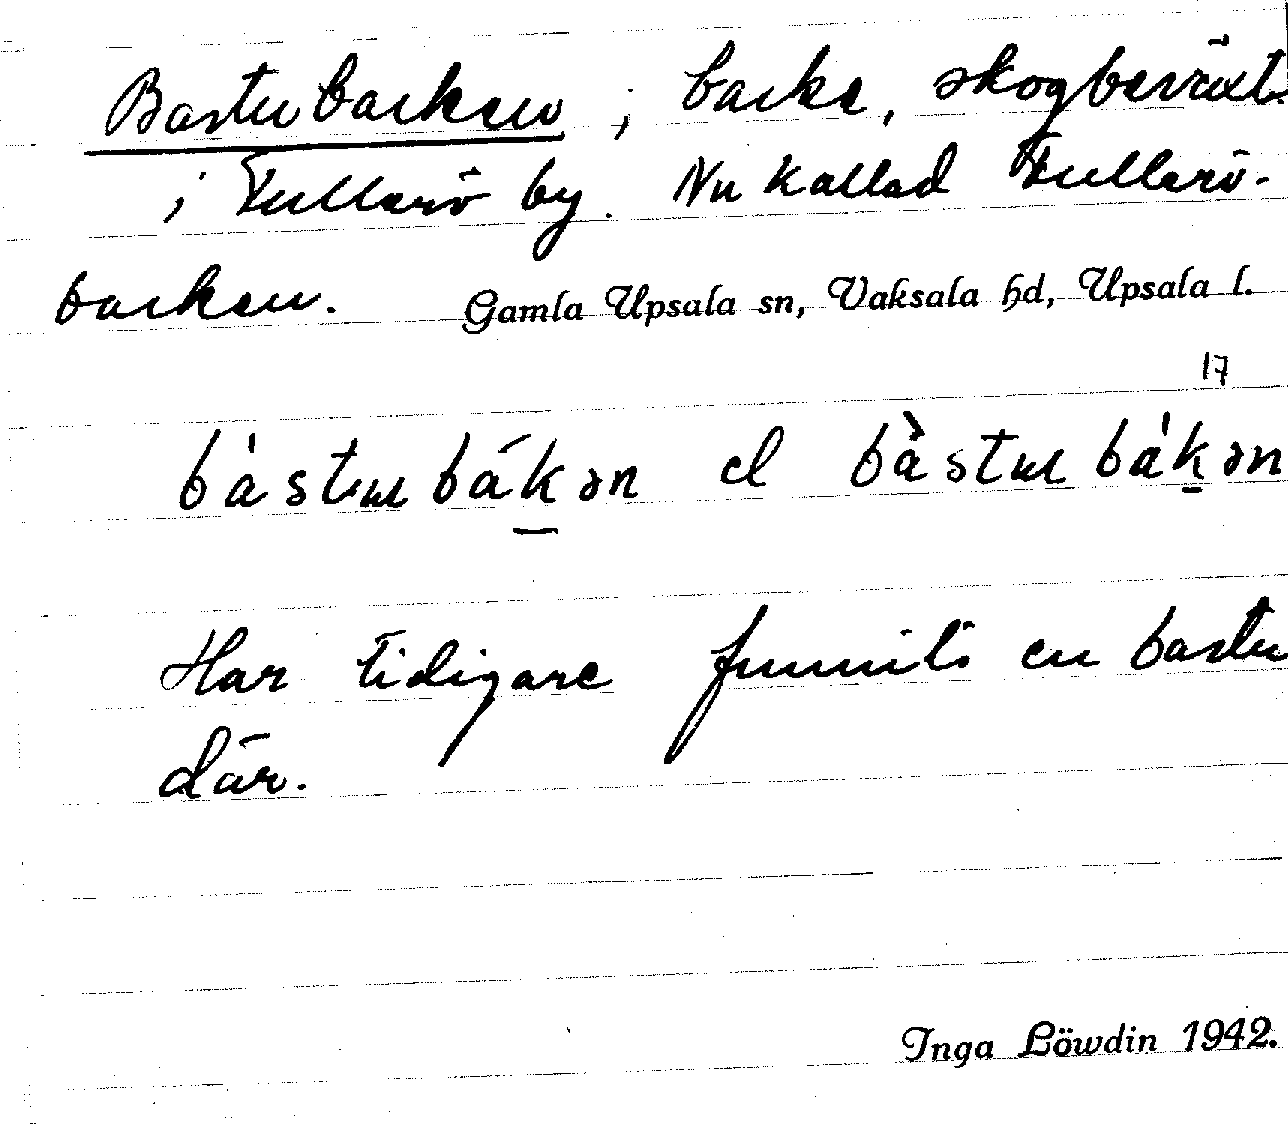 Bastubacken ; backe, skogbeväxt.
i Tullerö by. Nu kallad Tullerö-
backen. Gamla Upsala sn, Vaksala hd, Upsala l.
17
bàstɯbák̲ən el bàstɯbák̲ən
Har tidigare funnits en bastu
där.
Inga Löwdin 1942.